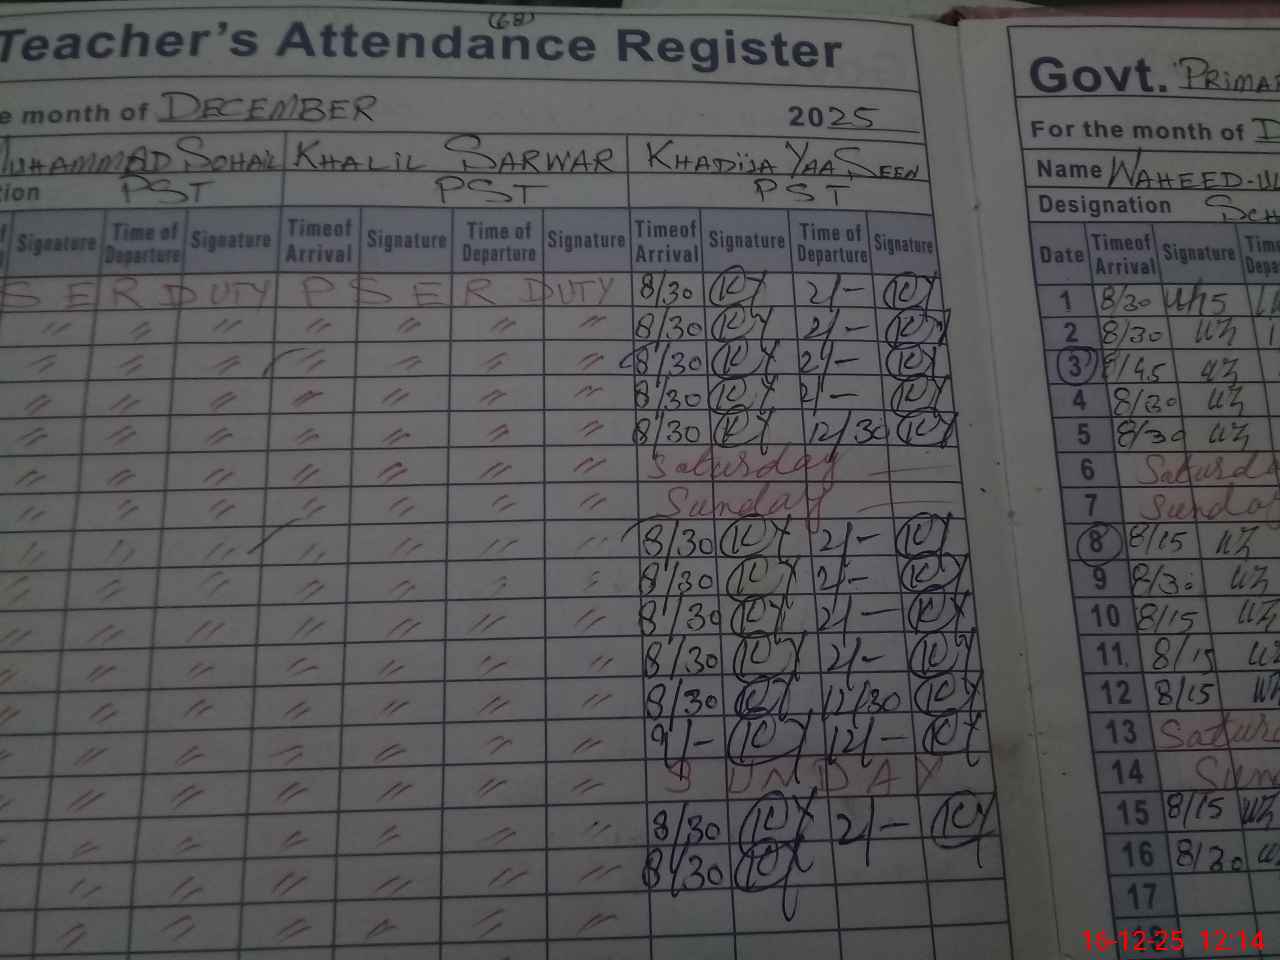 (68)
Teacher's Attendance Register
e month of DECEMBER 2025
MUHAMMAD SOHAIL KHALIL SARWAR KHADIJA YAASEEN
tion PST PST PST
Signature Time of Departure Signature Timeof Arrival Signature Time of Departure Signature Timeof Arrival Signature Time of Departure Signature
S E R DUTY P S E R DUTY 8/30 KY 2/- KY
" " " " " " " 8/30 KY 2/- KY
" " " " " " " 8/30 KY 2/- KY
" " " " " " " 8/30 KY 2/- KY
" " " " " " " 8/30 KY 12/30 KY
" " " " " " " Saturday
" " " " " " " Sunday
" " " " " " " 8/30 KY 2/- KY
" " " " " " " 8/30 KY 2/- KY
" " " " " " " 8/30 KY 2/- KY
" " " " " " " 8/30 KY 2/- KY
" " " " " " " 8/30 KY 12/30 KY
" " " " " " " 9/- KY 12/- KY
" " " " " " " SUNDAY
" " " " " " " 8/30 KY 2/- KY
" " " " " " " 8/30 KY
" " " " " " "
Govt. PRIMA
For the month of D
Name WAHEED-U
Designation SCH
Date Timeof Arrival Signature Time Depa
1 8/30
2 8/30
3 8/45
4 8/30
5 8/30
6 Saturda
7 Sunda
8 8/15
9 8/30
10 8/15
11. 8/15
12 8/15
13 Satur
14 Sun
15 8/15
16 8/30
17
18
16-12-25 12:14